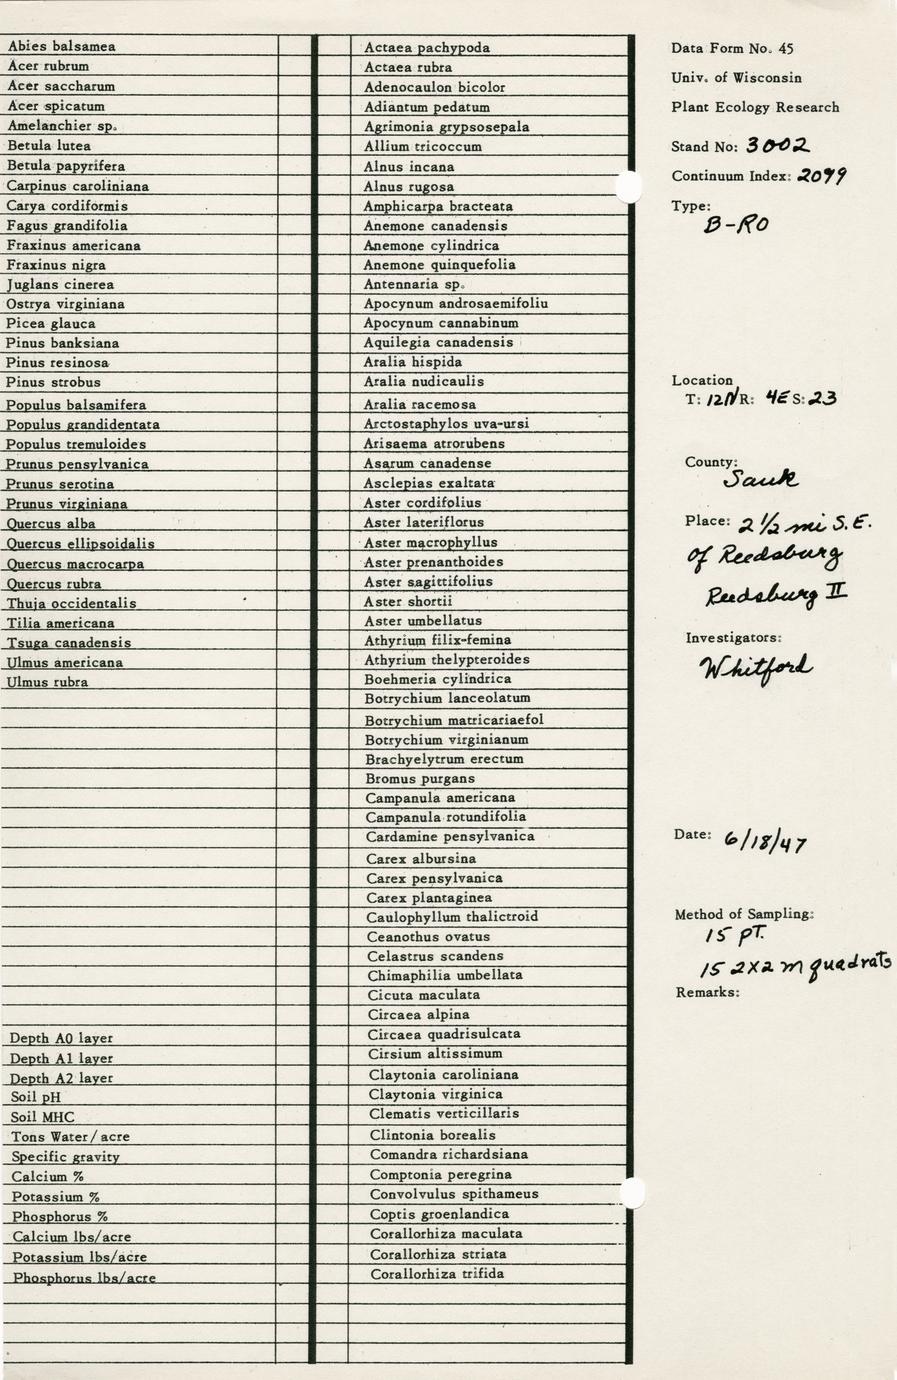 Abies balsamea
Acer rubrum
Acer saccharum
Acer spicatum
Amelanchier sp.
Betula lutea
Betula papyrifera
Carpinus caroliniana
Carya cordiformis
Fagus grandifolia
Fraxinus americana
Fraxinus nigra
Juglans cinerea
Ostrya virginiana
Picea glauca
Pinus banksiana
Pinus resinosa
Pinus strobus
Populus balsamifera
Populus grandidentata
Populus tremuloides
Prunus pensylvanica
Prunus serotina
Prunus virginiana
Quercus alba
Quercus ellipsoidalis
Quercus macrocarpa
Quercus rubra
Thuja occidentalis
Tilia americana
Tsuga canadensis
Ulmus americana
Ulmus rubra
Depth A0 layer
Depth A1 layer
Depth A2 layer
Soil pH
Soil MHC
Tons Water/acre
Specific gravity
Calcium %
Potassium %
Phosphorus %
Calcium lbs/acre
Potassium lbs/acre
Phosphorus lbs/acre
Actaea pachypoda
Actaea rubra
Adenocaulon bicolor
Adiantum pedatum
Agrimonia grypsosepala
Allium tricoccum
Alnus incana
Alnus rugosa
Amphicarpa bracteata
Anemone canadensis
Anemone cylindrica
Anemone quinquefolia
Antennaria sp.
Apocynum androsaemifoliu
Apocynum cannabinum
Aquilegia canadensis
Aralia hispida
Aralia nudicaulis
Aralia racemosa
Arctostaphylos uva-ursi
Arisaema atrorubens
Asarum canadense
Asclepias exaltata
Aster cordifolius
Aster lateriflorus
Aster macrophyllus
Aster prenanthoides
Aster sagittifolius
Aster shortii
Aster umbellatus
Athyrium filix-femina
Athyrium thelypteroides
Boehmeria cylindrica
Botrychium lanceolatum
Botrychium matricariaefol
Botrychium virginianum
Brachyelytrum erectum
Bromus purgans
Campanula americana
Campanula rotundifolia
Cardamine pensylvanica
Carex albursina
Carex pensylvanica
Carex plantaginea
Caulophyllum thalictroid
Ceanothus ovatus
Celastrus scandens
Chimaphilia umbellata
Cicuta maculata
Circaea alpina
Circaea quadrisulcata
Cirsium altissimum
Claytonia caroliniana
Claytonia virginica
Clematis verticillaris
Clintonia borealis
Comandra richardsiana
Comptonia peregrina
Convolvulus spithameus
Coptis groenlandica
Corallorhiza maculata
Corallorhiza striata
Corallorhiza trifida
Data Form No. 45
Univ. of Wisconsin
Plant Ecology Research
Stand No: 3002
Continuum Index: 2099
Type:
B-RO
Location
T: 12N R: 4E S: 23
County:
Sauk
Place: 2 1/2 mi S.E.
of Reedsburg
Reedsburg II
Investigators:
Whitford
Date: 6/18/47
Method of Sampling:
15 pt.
15 2x2 m quadrats
Remarks: